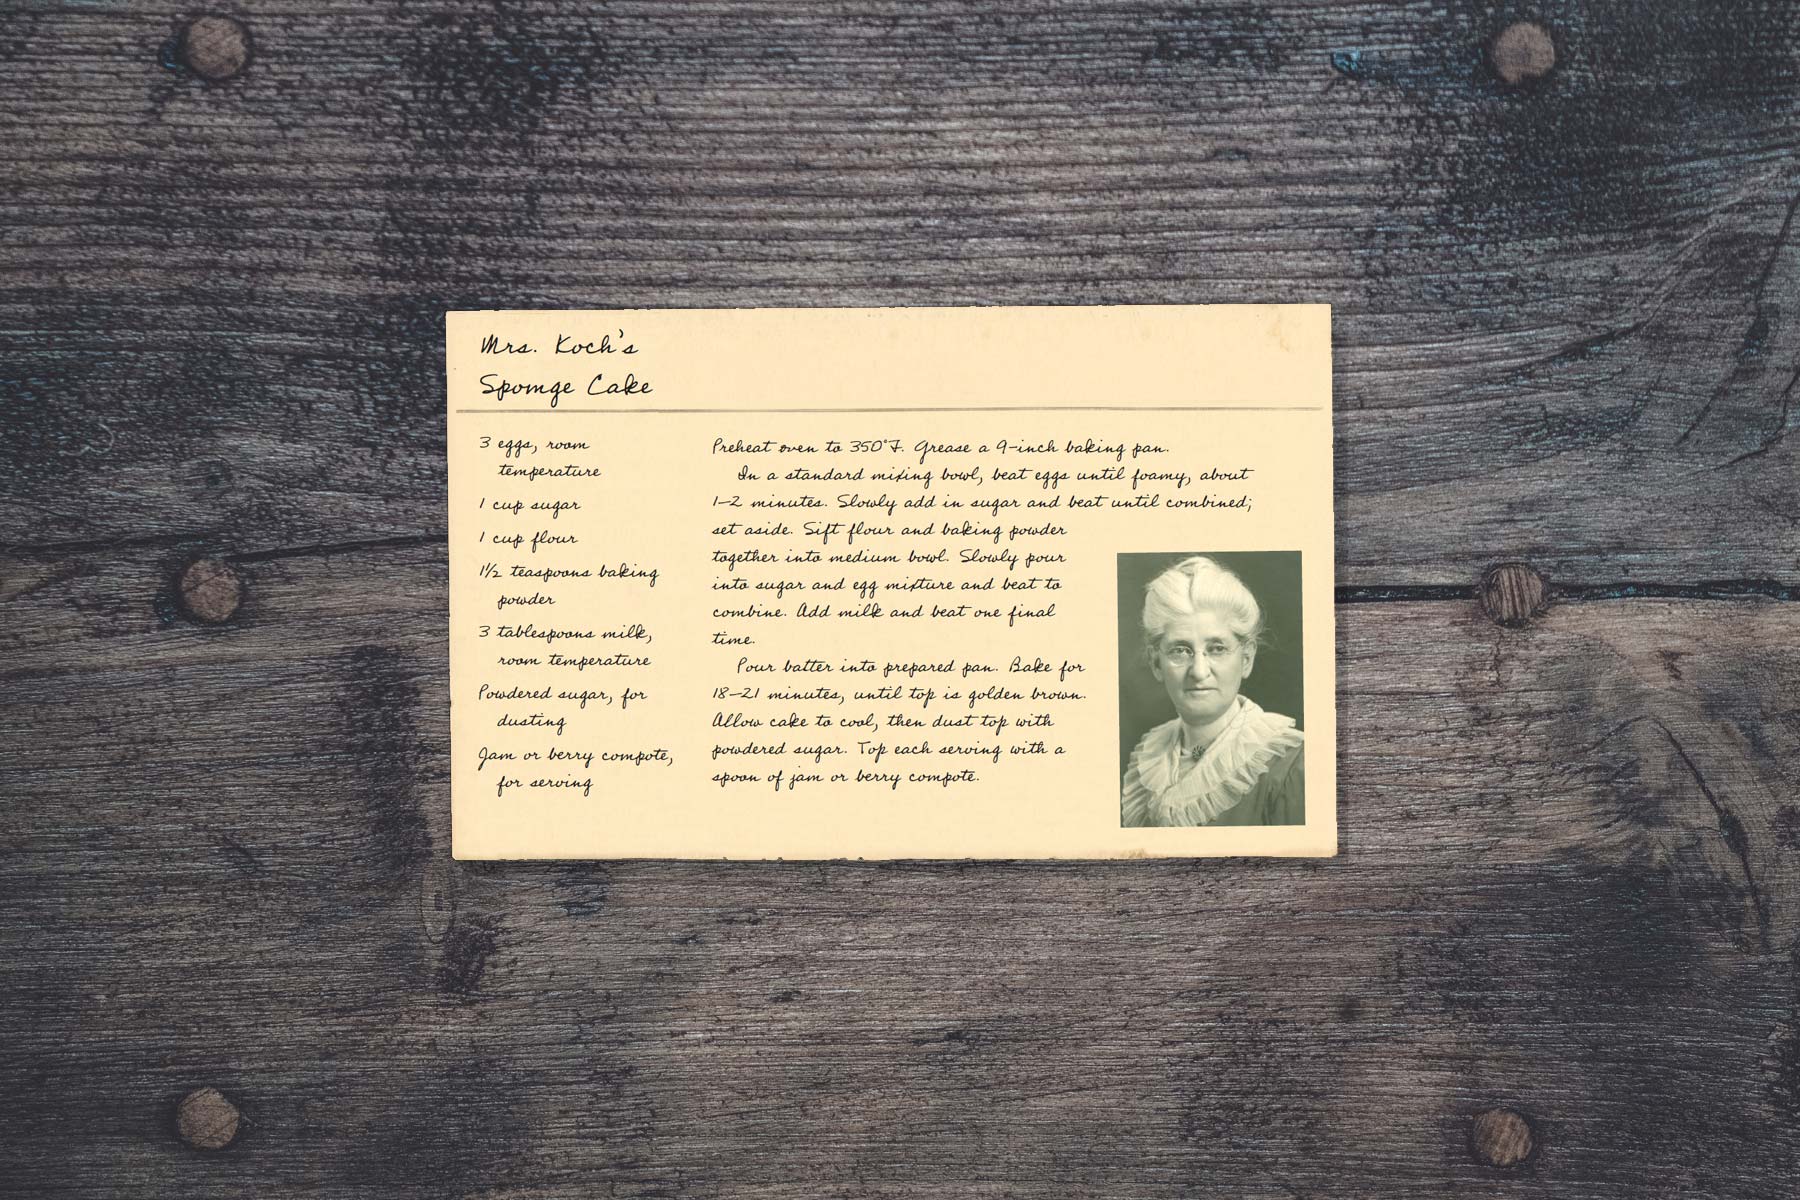 Mrs. Koch's
Sponge Cake
3 eggs, room
temperature
1 cup sugar
1 cup flour
1½ teaspoons baking
powder
3 tablespoons milk,
room temperature
Powdered sugar, for
dusting
Jam or berry compote,
for serving
Preheat oven to 350°F. Grease a 9-inch baking pan.
In a standard mixing bowl, beat eggs until foamy, about
1–2 minutes. Slowly add in sugar and beat until combined;
set aside. Sift flour and baking powder
together into medium bowl. Slowly pour
into sugar and egg mixture and beat to
combine. Add milk and beat one final
time.
Pour batter into prepared pan. Bake for
18–21 minutes, until top is golden brown.
Allow cake to cool, then dust top with
powdered sugar. Top each serving with a
spoon of jam or berry compote.